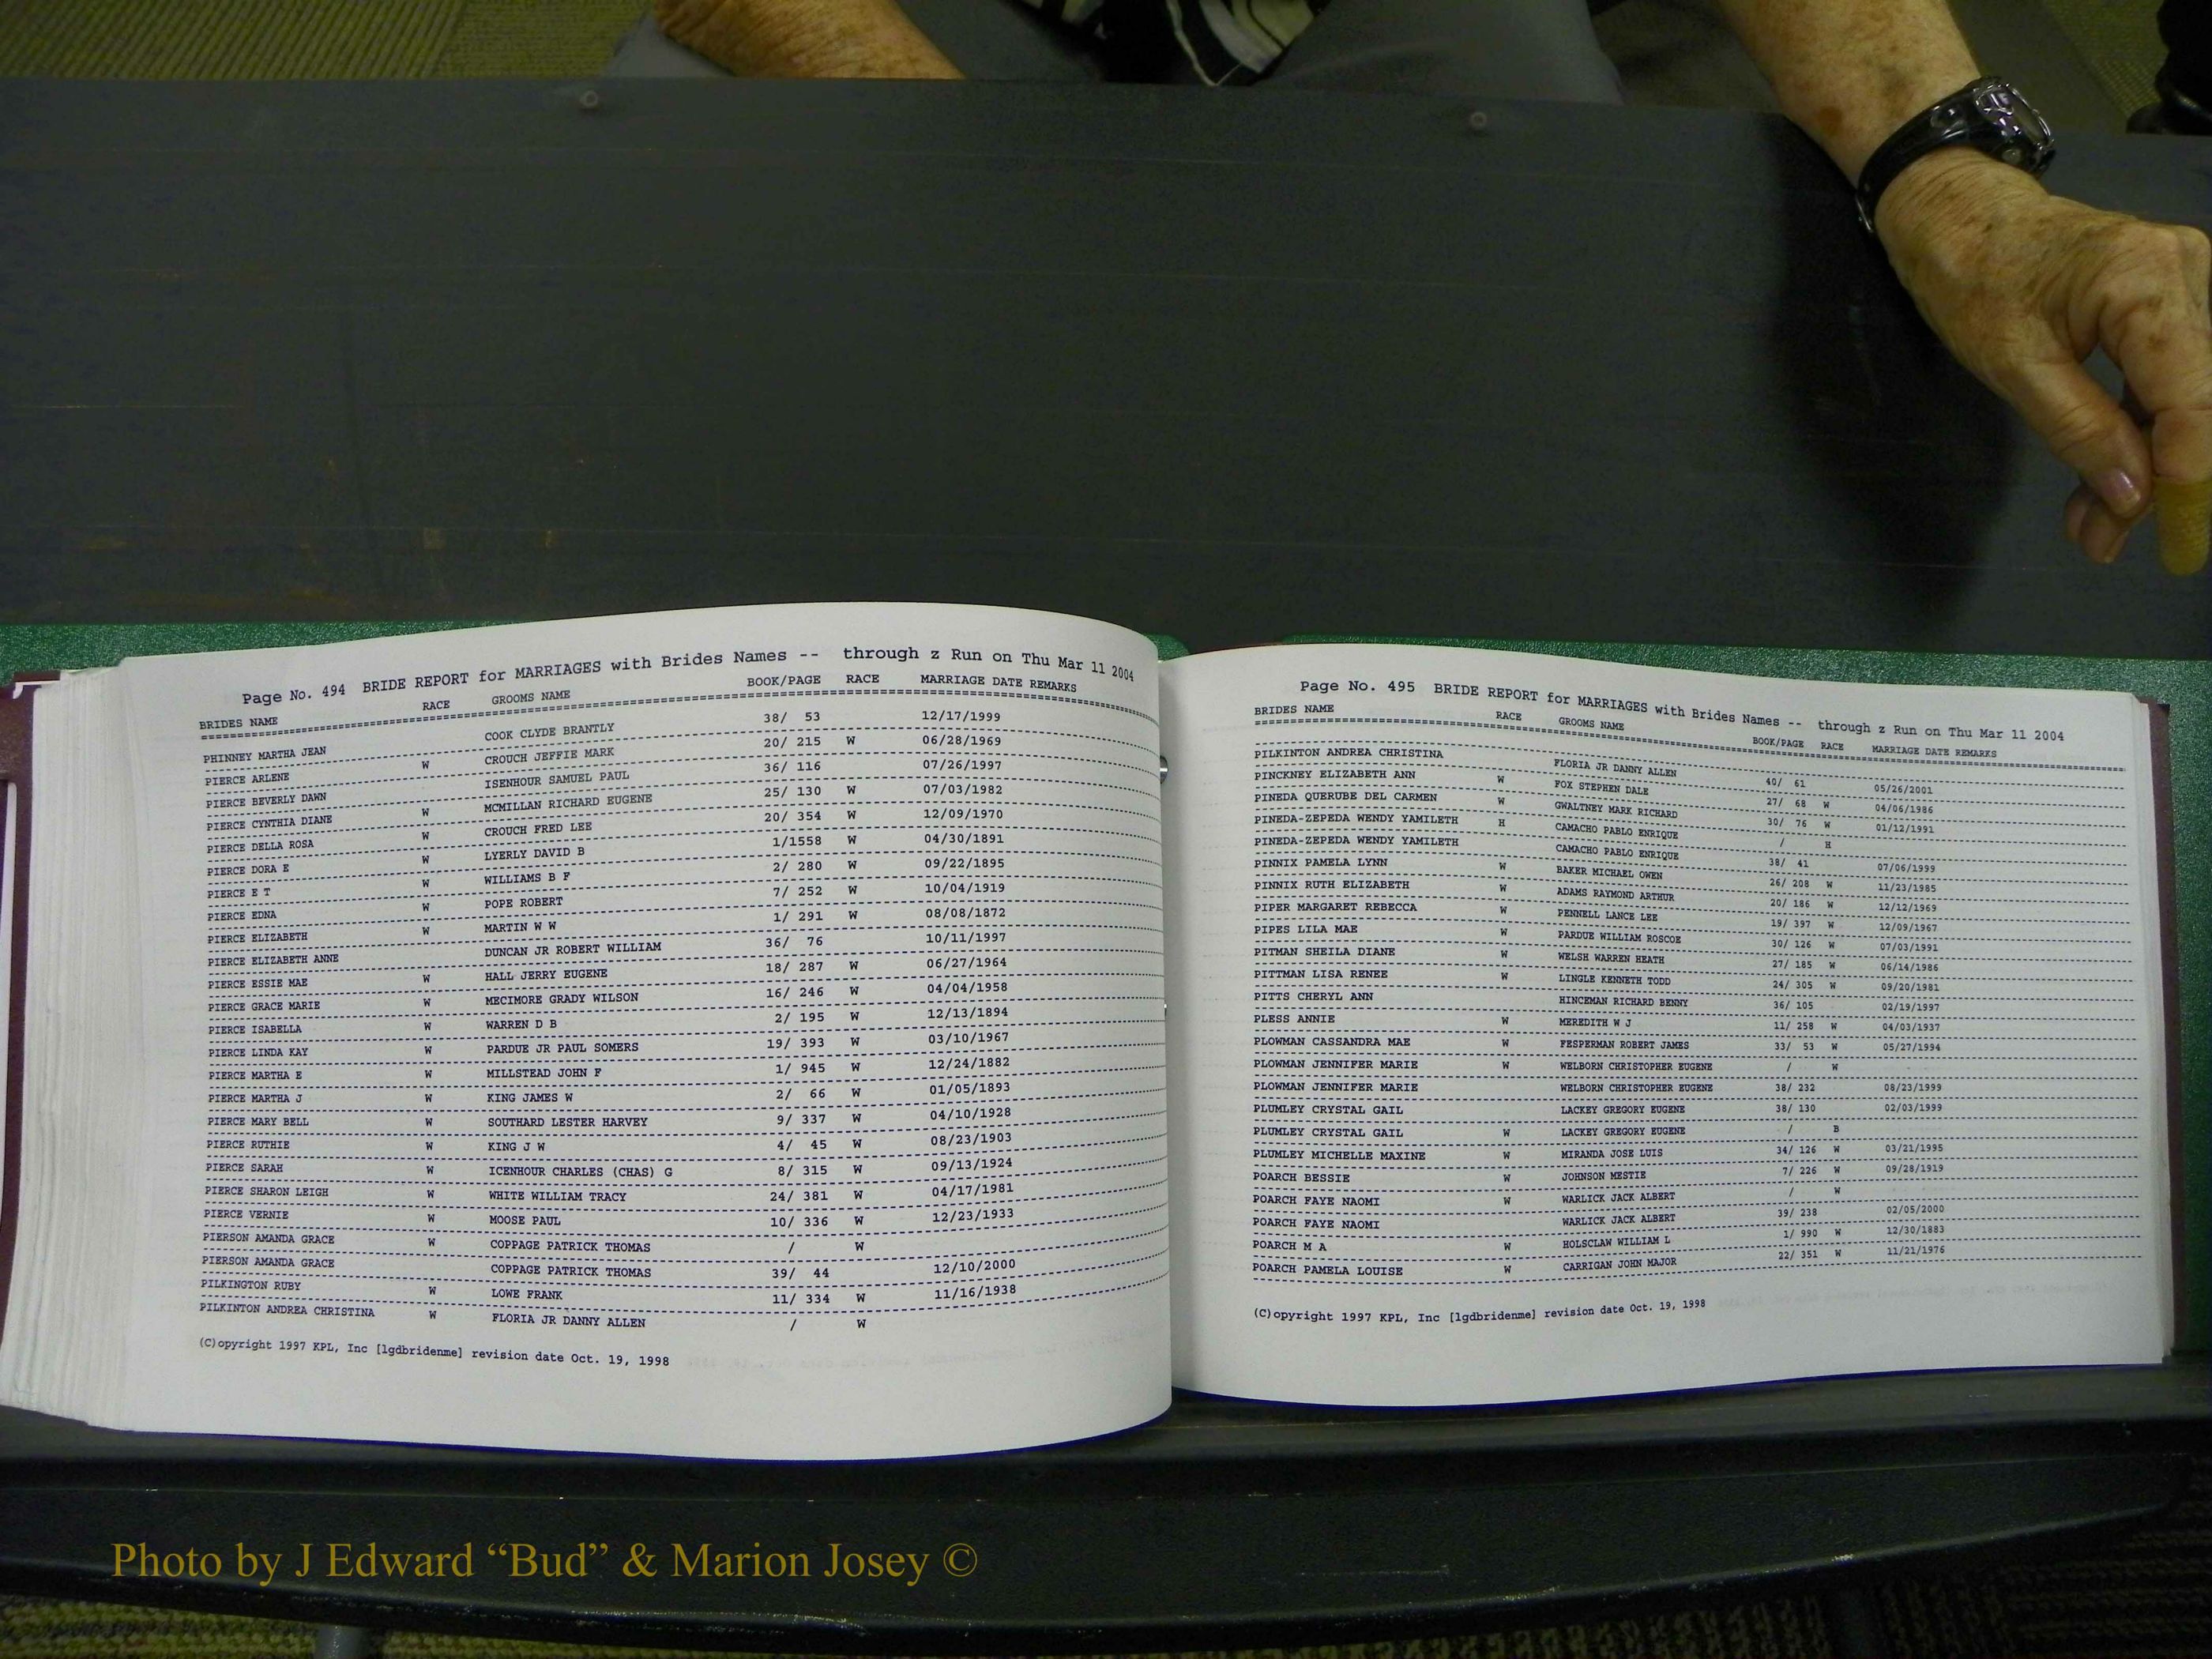 Page No. 494 BRIDE REPORT for MARRIAGES with Brides Names -- through z Run on Thu Mar 11 2004
BRIDES NAME RACE GROOMS NAME BOOK/PAGE RACE MARRIAGE DATE REMARKS
PHINNEY MARTHA JEAN COOK CLYDE BRANTLY 38/ 53 12/17/1999
PIERCE ARLENE W CROUCH JEFFIE MARK 20/ 215 W 06/28/1969
PIERCE BEVERLY DAWN ISENHOUR SAMUEL PAUL 36/ 116 07/26/1997
PIERCE CYNTHIA DIANE W MCMILLAN RICHARD EUGENE 25/ 130 W 07/03/1982
PIERCE DELLA ROSA W CROUCH FRED LEE 20/ 354 W 12/09/1970
PIERCE DORA E W LYERLY DAVID B 1/1558 W 04/30/1891
PIERCE E T W WILLIAMS B F 2/ 280 W 09/22/1895
PIERCE EDNA W POPE ROBERT 7/ 252 W 10/04/1919
PIERCE ELIZABETH W MARTIN W W 1/ 291 W 08/08/1872
PIERCE ELIZABETH ANNE DUNCAN JR ROBERT WILLIAM 36/ 76 10/11/1997
PIERCE ESSIE MAE W HALL JERRY EUGENE 18/ 287 W 06/27/1964
PIERCE GRACE MARIE W MECIMORE GRADY WILSON 16/ 246 W 04/04/1958
PIERCE ISABELLA W WARREN D B 2/ 195 W 12/13/1894
PIERCE LINDA KAY W PARDUE JR PAUL SOMERS 19/ 393 W 03/10/1967
PIERCE MARTHA E W MILLSTEAD JOHN F 1/ 945 W 12/24/1882
PIERCE MARTHA J W KING JAMES W 2/ 66 W 01/05/1893
PIERCE MARY BELL W SOUTHARD LESTER HARVEY 9/ 337 W 04/10/1928
PIERCE RUTHIE W KING J W 4/ 45 W 08/23/1903
PIERCE SARAH W ICENHOUR CHARLES (CHAS) G 8/ 315 W 09/13/1924
PIERCE SHARON LEIGH W WHITE WILLIAM TRACY 24/ 381 W 04/17/1981
PIERCE VERNIE W MOOSE PAUL 10/ 336 W 12/23/1933
PIERSON AMANDA GRACE W COPPAGE PATRICK THOMAS / W
PIERSON AMANDA GRACE COPPAGE PATRICK THOMAS 39/ 44 12/10/2000
PILKINGTON RUBY W LOWE FRANK 11/ 334 W 11/16/1938
PILKINTON ANDREA CHRISTINA W FLORIA JR DANNY ALLEN / W
(C)opyright 1997 KPL, Inc [lgdbridenme] revision date Oct. 19, 1998
Page No. 495 BRIDE REPORT for MARRIAGES with Brides Names -- through z Run on Thu Mar 11 2004
BRIDES NAME RACE GROOMS NAME BOOK/PAGE RACE MARRIAGE DATE REMARKS
PILKINTON ANDREA CHRISTINA FLORIA JR DANNY ALLEN 40/ 61 05/26/2001
PINCKNEY ELIZABETH ANN W FOX STEPHEN DALE 27/ 68 W 04/06/1986
PINEDA QUERUBE DEL CARMEN W GWALTNEY MARK RICHARD 30/ 76 W 01/12/1991
PINEDA-ZEPEDA WENDY YAMILETH H CAMACHO PABLO ENRIQUE / H
PINEDA-ZEPEDA WENDY YAMILETH CAMACHO PABLO ENRIQUE 38/ 41 07/06/1999
PINNIX PAMELA LYNN W BAKER MICHAEL OWEN 26/ 208 W 11/23/1985
PINNIX RUTH ELIZABETH W ADAMS RAYMOND ARTHUR 20/ 186 W 12/12/1969
PIPER MARGARET REBECCA W PENNELL LANCE LEE 19/ 397 W 12/09/1967
PIPES LILA MAE W PARDUE WILLIAM ROSCOE 30/ 126 W 07/03/1991
PITMAN SHEILA DIANE W WELSH WARREN HEATH 27/ 185 W 06/14/1986
PITTMAN LISA RENEE W LINGLE KENNETH TODD 24/ 305 W 09/20/1981
PITTS CHERYL ANN HINCEMAN RICHARD BENNY 36/ 105 02/19/1997
PLESS ANNIE W MEREDITH W J 11/ 258 W 04/03/1937
PLOWMAN CASSANDRA MAE W FESPERMAN ROBERT JAMES 33/ 53 W 05/27/1994
PLOWMAN JENNIFER MARIE W WELBORN CHRISTOPHER EUGENE / W
PLOWMAN JENNIFER MARIE WELBORN CHRISTOPHER EUGENE 38/ 232 08/23/1999
PLUMLEY CRYSTAL GAIL LACKEY GREGORY EUGENE 38/ 130 02/03/1999
PLUMLEY CRYSTAL GAIL W LACKEY GREGORY EUGENE / B
PLUMLEY MICHELLE MAXINE W MIRANDA JOSE LUIS 34/ 126 W 03/21/1995
POARCH BESSIE W JOHNSON MESTIE 7/ 226 W 09/28/1919
POARCH FAYE NAOMI W WARLICK JACK ALBERT / W
POARCH FAYE NAOMI WARLICK JACK ALBERT 39/ 238 02/05/2000
POARCH M A W HOLSCLAW WILLIAM L 1/ 990 W 12/30/1883
POARCH PAMELA LOUISE W CARRIGAN JOHN MAJOR 22/ 351 W 11/21/1976
(C)opyright 1997 KPL, Inc [lgdbridenme] revision date Oct. 19, 1998
Photo by J Edward “Bud” & Marion Josey ©